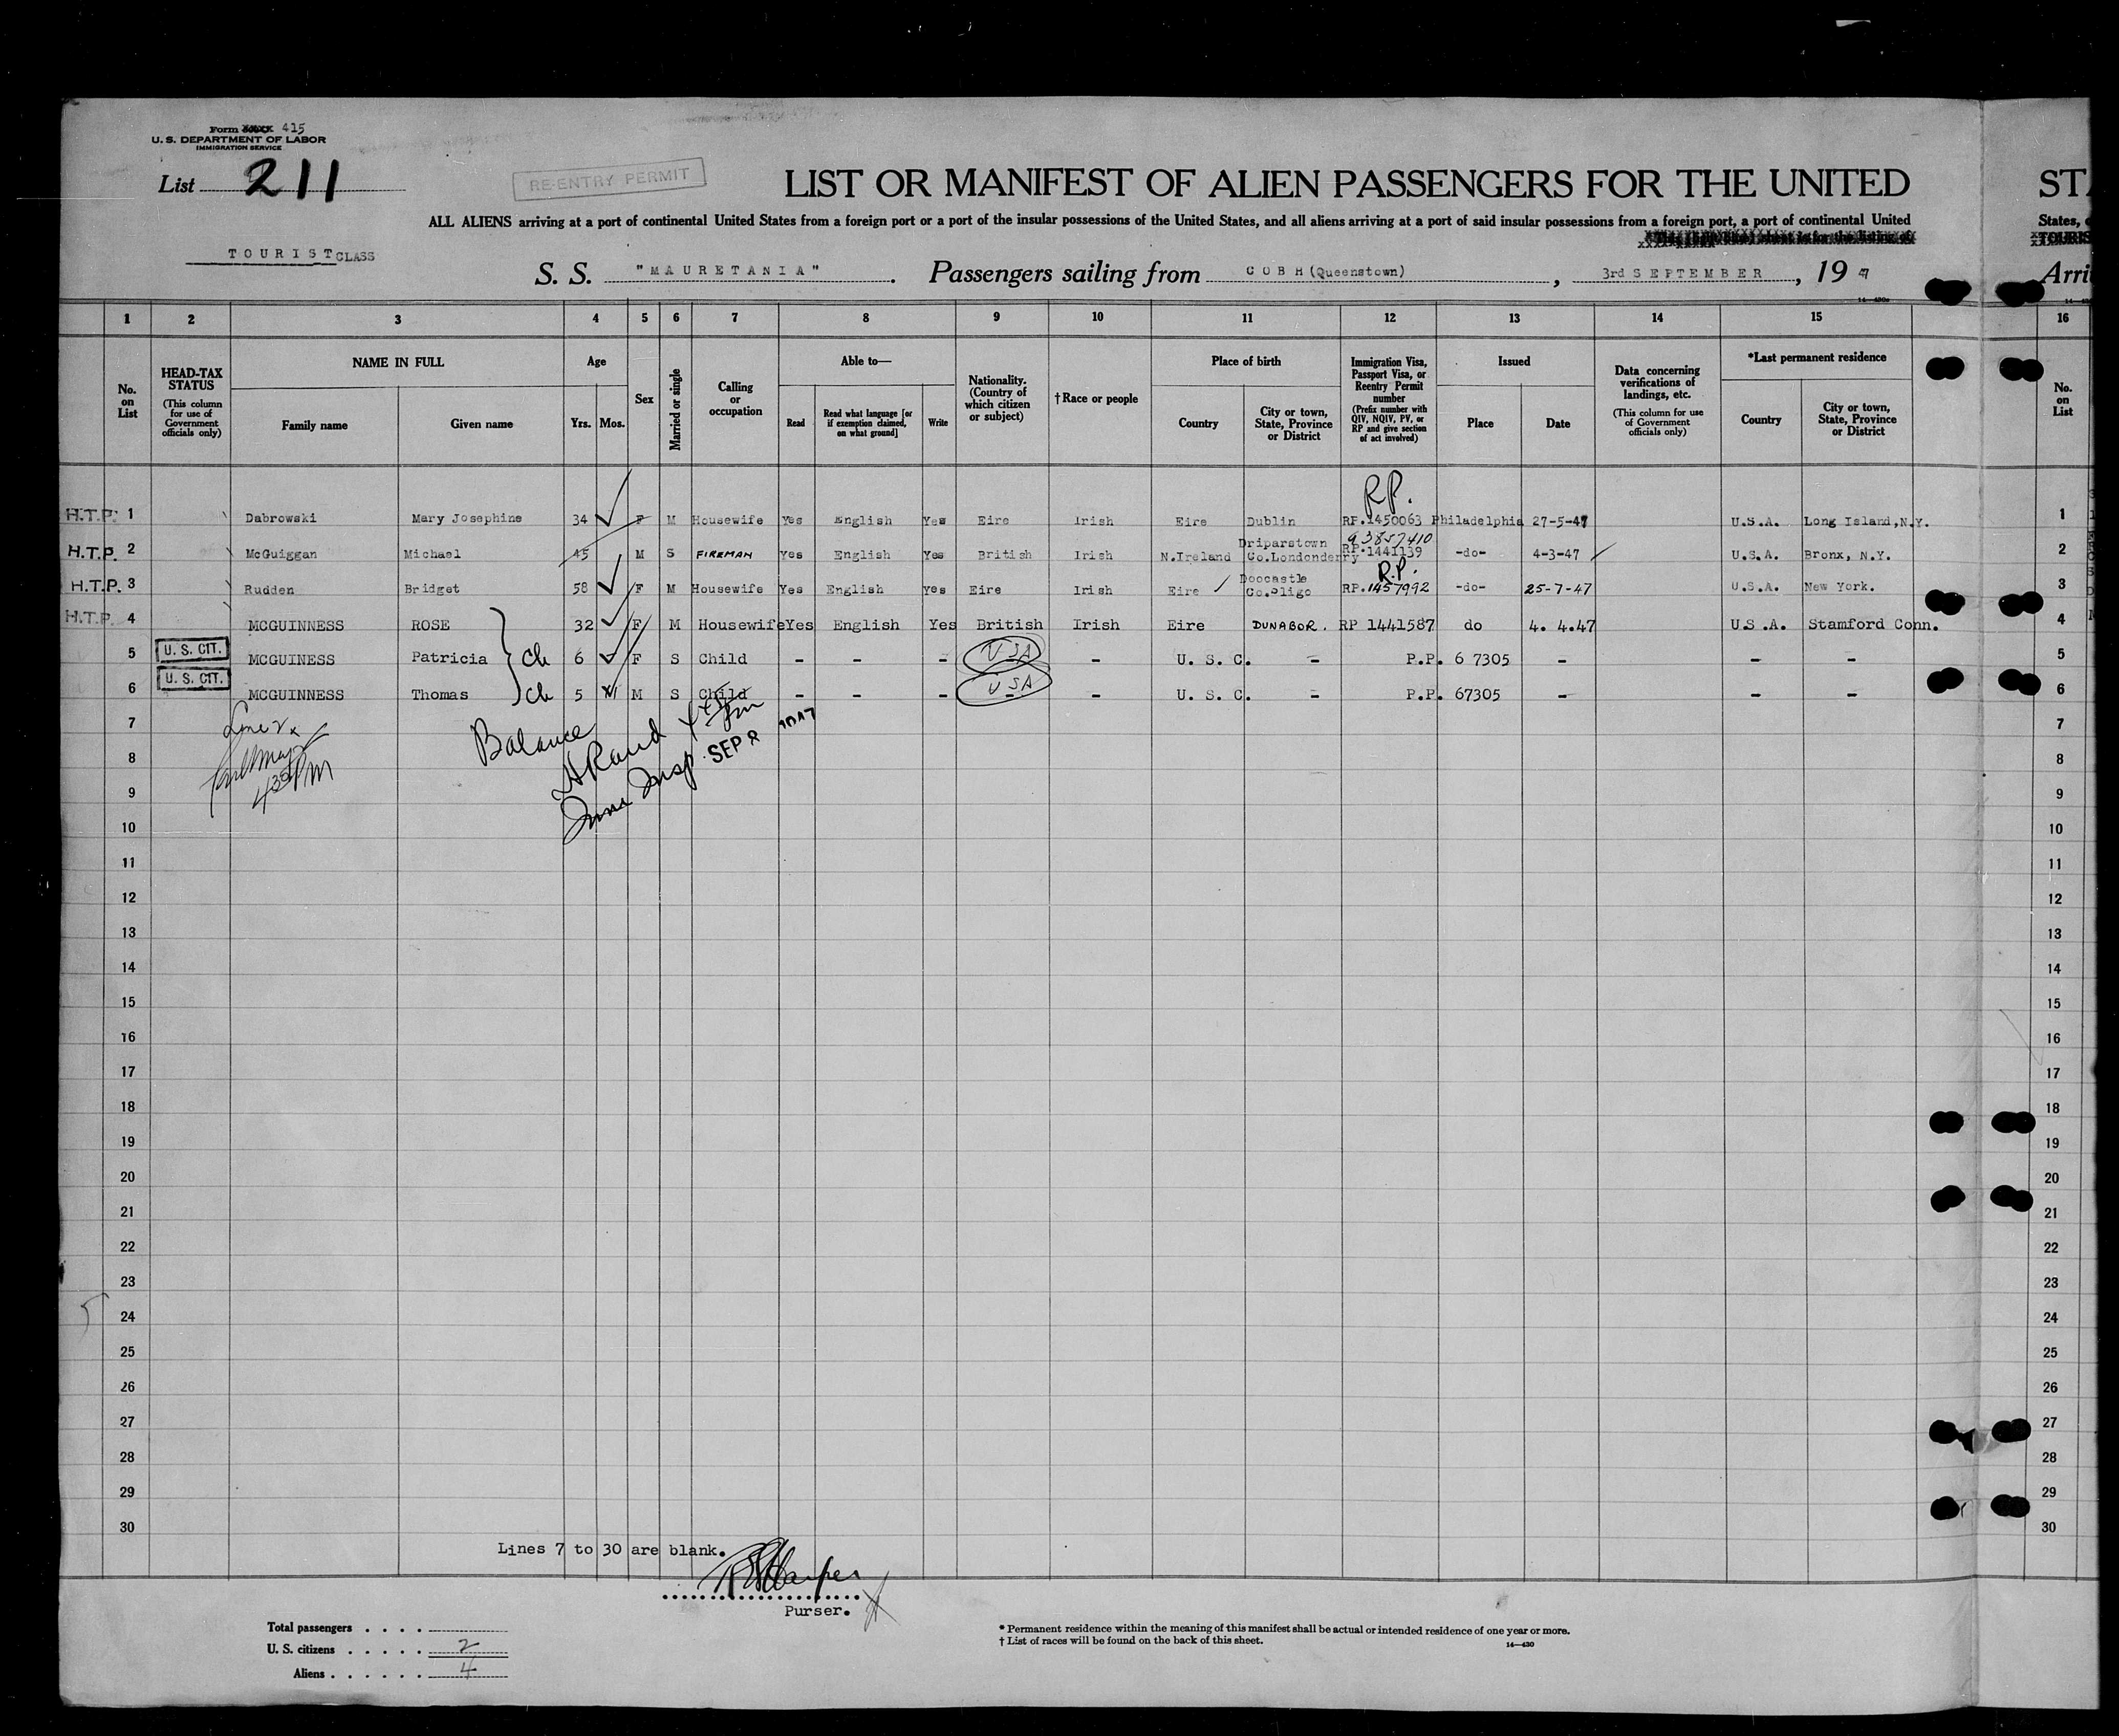 Form 415
U. S. DEPARTMENT OF LABOR
IMMIGRATION SERVICE
List 211
RE-ENTRY PERMIT
LIST OR MANIFEST OF ALIEN PASSENGERS FOR THE UNITED STA
ALL ALIENS arriving at a port of continental United States from a foreign port or a port of the insular possessions of the United States, and all aliens arriving at a port of said insular possessions from a foreign port, a port of continental United States,
TOURIST CLASS
S. S. "MAURETANIA". Passengers sailing from COBH (Queenstown), 3rd SEPTEMBER, 19 47 Arri
1 2 3 4 5 6 7 8 9 10 11 12 13 14 15 16
No. on List
HEAD-TAX STATUS
(This column for use of Government officials only)
NAME IN FULL
Family name
Given name
Age
Yrs. Mos.
Sex
Married or single
Calling or occupation
Able to—
Read
Read what language [or if exemption claimed, on what ground]
Write
Nationality. (Country of which citizen or subject)
†Race or people
Place of birth
Country
City or town, State, Province or District
Immigration Visa, Passport Visa, or Reentry Permit number
(Prefix number with QIV, NQIV, PV, or RP and give section of act involved)
Issued
Place
Date
Data concerning verifications of landings, etc.
(This column for use of Government officials only)
*Last permanent residence
Country
City or town, State, Province or District
No. on List
R.P.
H.T.P. 1 Dabrowski Mary Josephine 34 F M Housewife Yes English Yes Eire Irish Eire Dublin RP.1450063 Philadelphia 27-5-47 U.S.A. Long Island,N.Y. 1
93857410
H.T.P. 2 McGuiggan Michael 45 M S FIREMAN Yes English Yes British Irish N.Ireland Driparstown Co.Londonderry RP.1441139 -do- 4-3-47 U.S.A. Bronx, N.Y. 2
R.P.
H.T.P. 3 Rudden Bridget 58 F M Housewife Yes English Yes Eire Irish Eire Doocastle Co.Sligo RP.1457992 -do- 25-7-47 U.S.A. New York. 3
H.T.P. 4 MCGUINNESS ROSE 32 F M Housewife Yes English Yes British Irish Eire DUNABOR. RP 1441587 do 4. 4.47 U.S.A. Stamford Conn. 4
5 U. S. CIT. MCGUINESS Patricia Ch 6 F S Child - - - USA - U. S. C. - P.P. 6 7305 - - - 5
6 U. S. CIT. MCGUINNESS Thomas Ch 5 M S Child - - - USA - U. S. C. - P.P. 67305 - - - 6
7 7
Line 2
430 PM
Balance
Imm Insp. SEP 8 1947
8 8
9 9
10 10
11 11
12 12
13 13
14 14
15 15
16 16
17 17
18 18
19 19
20 20
21 21
22 22
23 23
24 24
25 25
26 26
27 27
28 28
29 29
30 30
Lines 7 to 30 are blank.
Purser.
Total passengers . . . .
U. S. citizens . . . . . 2
Aliens . . . . . . 4
* Permanent residence within the meaning of this manifest shall be actual or intended residence of one year or more.
† List of races will be found on the back of this sheet.
14—430